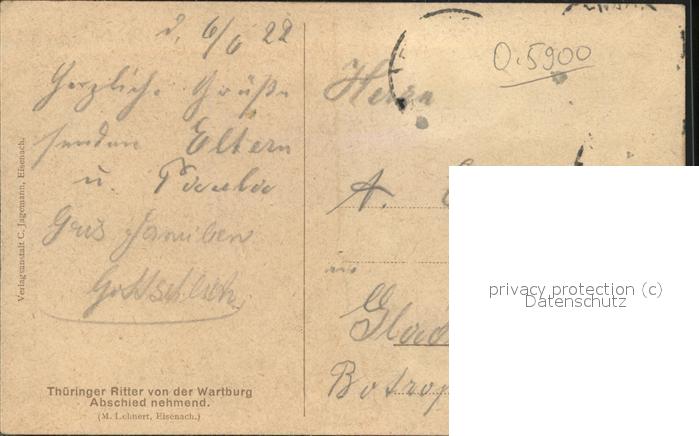 d. 6/6 22
Herzliche Grüße
senden Eltern
u.
Gottschlich.
Verlagsanstalt C. Jagemann, Eisenach.
Thüringer Ritter von der Wartburg
Abschied nehmend.
(M. Lehnert, Eisenach.)
O.5900
Herrn
A.
in
Glad
Botrop
privacy protection (c)
Datenschutz